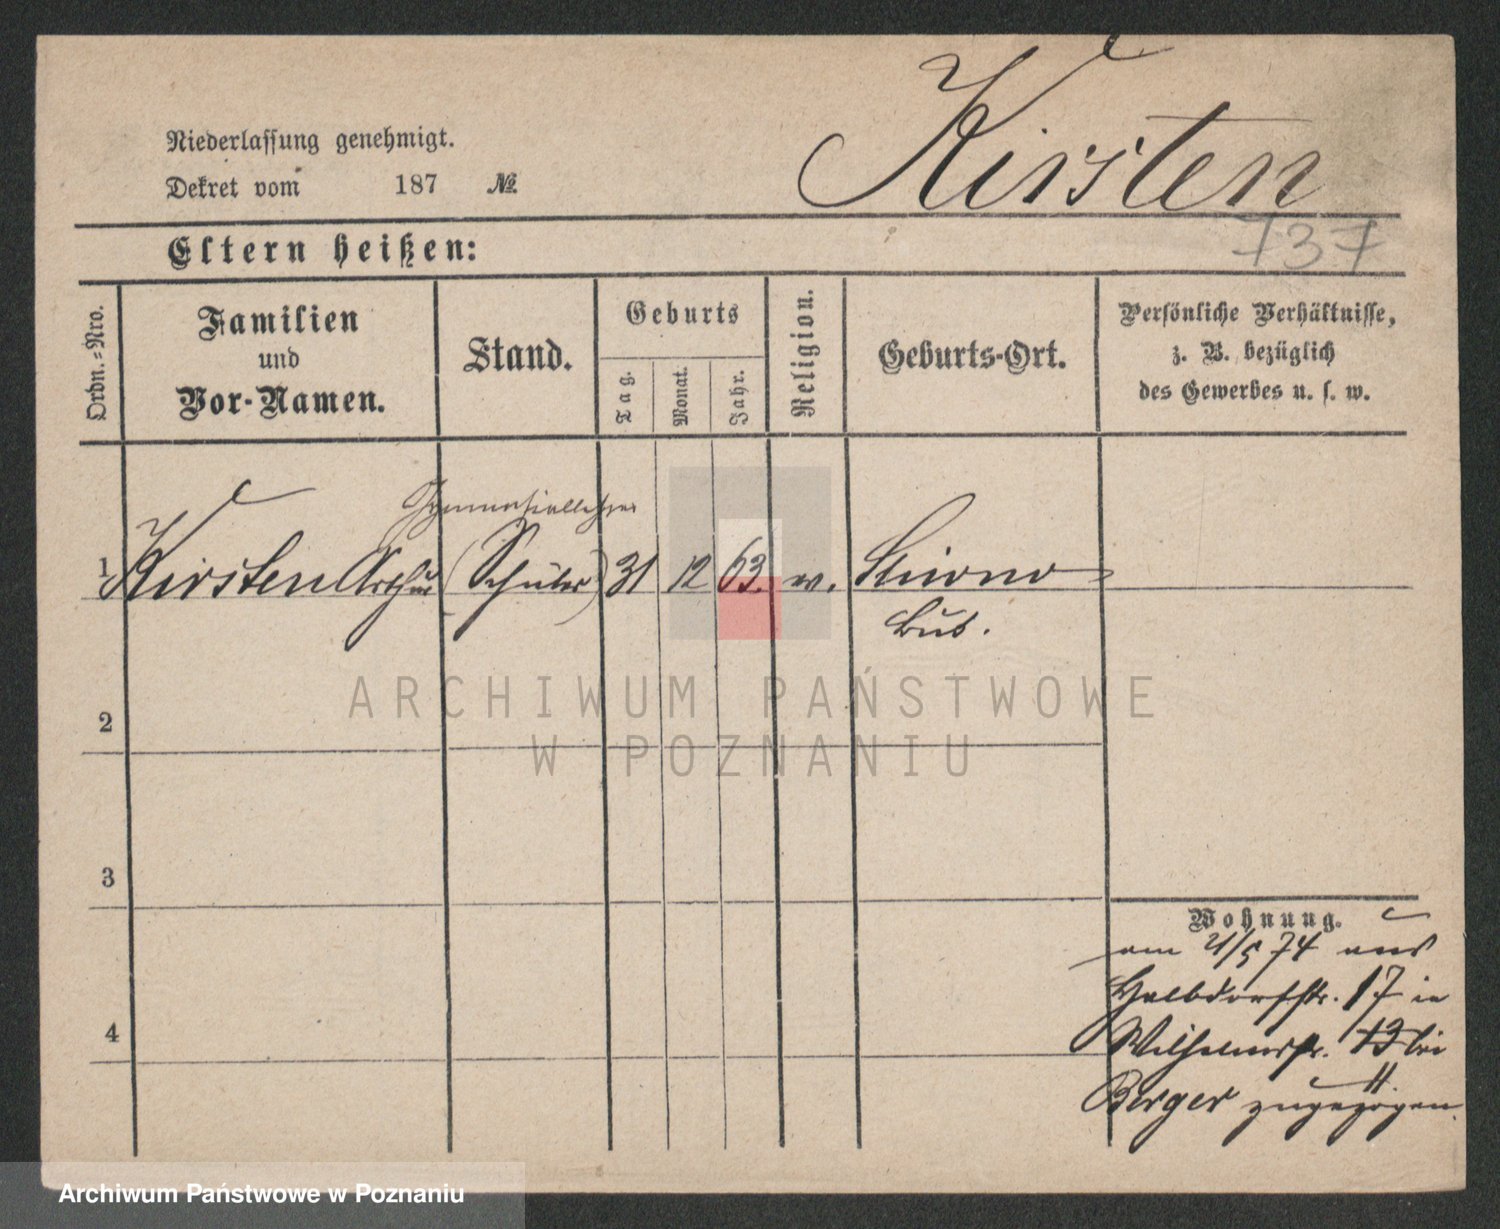 Kirsten
Niederlassung genehmigt.
Dekret vom 187 №
737
Eltern heißen:
Ordn.=Nro.
Familien
und
Vor-Namen.
Stand.
Geburts
Tag.
Monat.
Jahr.
Religion.
Geburts-Ort.
Persönliche Verhältnisse,
z. B. bezüglich
des Gewerbes u. s. w.
Gymnasiallehrer
1 Kirsten Arthur (Schüler) 31 12 63.
Bub.
ARCHIWUM PAŃSTWOWE
W POZNANIU
2
3
4
Wohnung.
am 21/5 74 aus
Halbdorfstr. 17 in
Wilhelmstr. 13 bei
Berger zugezogen.
Archiwum Państwowe w Poznaniu